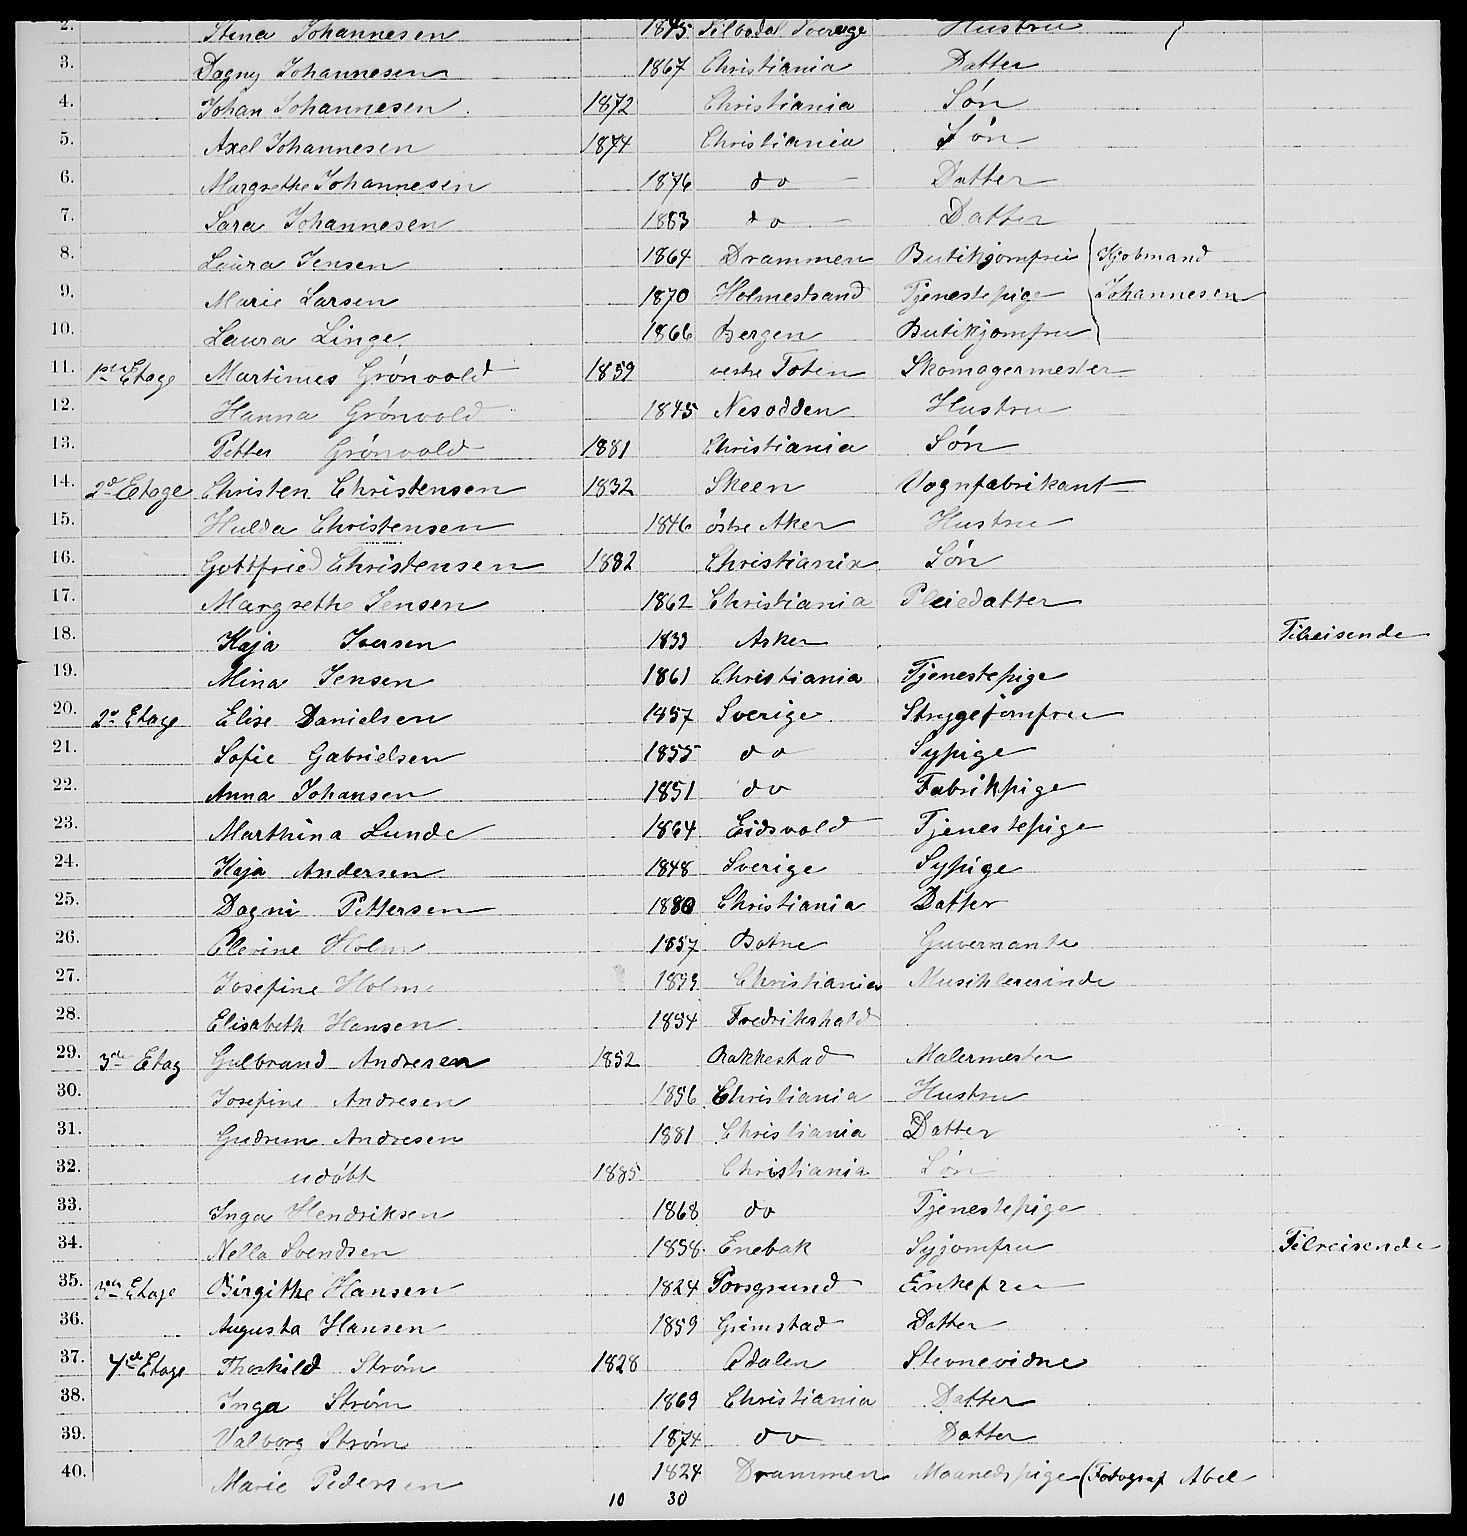 2. Stina Johannesen 1845 Silbodal Sverige Hustru
3. Dagny Johannesen 1867 Christiania Datter
4. Johan Johannesen 1872 Christiania Søn
5. Axel Johannesen 1874 Christiania Søn
6. Margrethe Johannesen 1876 do Datter
7. Sara Johannesen 1883 do Datter
8. Laura Jensen 1864 Drammen Butikjomfru Kjobmand
9. Marie Larsen 1870 Holmestrand Tjenestepige Johannesen
10. Laura Linge 1866 Bergen Butikjomfru
11. 1ste Etage Martinus Grönvold 1859 vestre Toten Skomagermester
12. Hanna Grönvold 1845 Nesodden Hustru
13. Petter Grönvold 1881 Christiania Søn
14. 2d Etage Christen Christensen 1832 Skeen Vognfabrikant
15. Hulda Christensen 1846 östre Aker Hustru
16. Gottfried Christensen 1882 Christiania Søn
17. Margrethe Jensen 1862 Christiania Pleiedatter
18. Kaja Iversen 1833 Asker Tilreisende
19. Mina Jensen 1861 Christiania Tjenestepige
20. 2d Etage Elise Danielsen 1857 Sverige Strygejomfru
21. Sofie Gabrielsen 1855 do Sypige
22. Anna Johansen 1851 do Fabrikpige
23. Marthina Lunde 1864 Eidsvold Tjenestepige
24. Kaja Andersen 1848 Sverige Sypige
25. Dagni Pettersen 1880 Christiania Datter
26. Olevine Holm 1857 Botne Guvernante
27. Josefine Holm 1859 Christiania Musiklererinde
28. Elisabeth Hansen 1854 Fredrikshald
29. 3de Etag Gulbrand Andresen 1852 Rakkestad Malermester
30. Josefine Andresen 1856 Christiania Hustru
31. Gudrun Andresen 1881 Christiania Datter
32. udøbt 1885 Christiania Søn
33. Inga Hendriksen 1868 do Tjenestepige
34. Nella Svendsen 1858 Enebak Syjomfru Tilreisende
35. 3die Etage Birgithe Hansen 1824 Porsgrund Enkefru
36. Augusta Hansen 1859 Grimstad Datter
37. 4de Etage Thorkild Strøm 1828 Odalen Stevnevidne
38. Inga Strøm 1869 Christiania Datter
39. Valborg Strøm 1874 do Datter
40. Marie Pedersen 1824 Drammen Maanedspige (Fotograf Abel
10 30